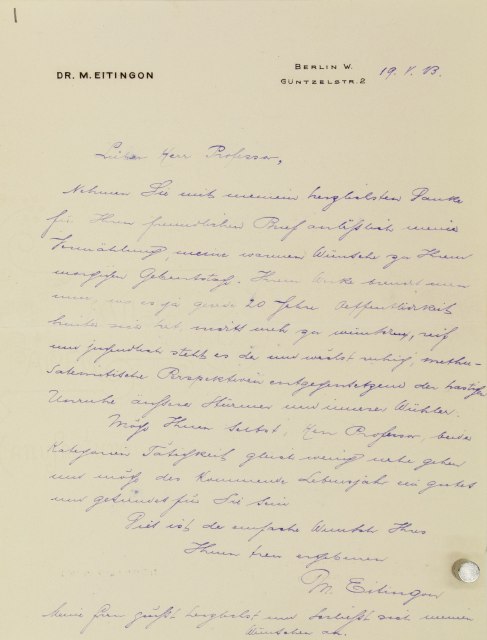 1
DR. M. EITINGON
BERLIN W.
GÜNTZELSTR. 2
19. V. 13.
Lieber Herr Professor,
Nehmen Sie mit meinem herzlichsten Danke
für Ihren freundlichen Brief anläßlich meiner
Vermählung, meine warmen Wünsche zu Ihrem
morgigen Geburtstag. Ihrem Werke braucht man
nun, wo es ja gerade 20 Jahre Oeffentlichkeit
hinter sich hat, nichts mehr zu wünschen, reif
und jugendlich steht es da und wächst ruhig,
Perspektiven entgegensetzend der hastigen
Unruhe äusserer Stürmer und innerer Wühler.
Ihnen selbst, Herr Professor, beide
Kategorien Tätigkeit gleich wenig
und das kommende Lebensjahr ein gutes
und für Sie sein
Dies ist der einfache Wunsch Ihres
Ihnen treu ergebenen
M. Eitingon
Meine Frau grüßt herzlichst und schließt sich meinen
Wünschen an.